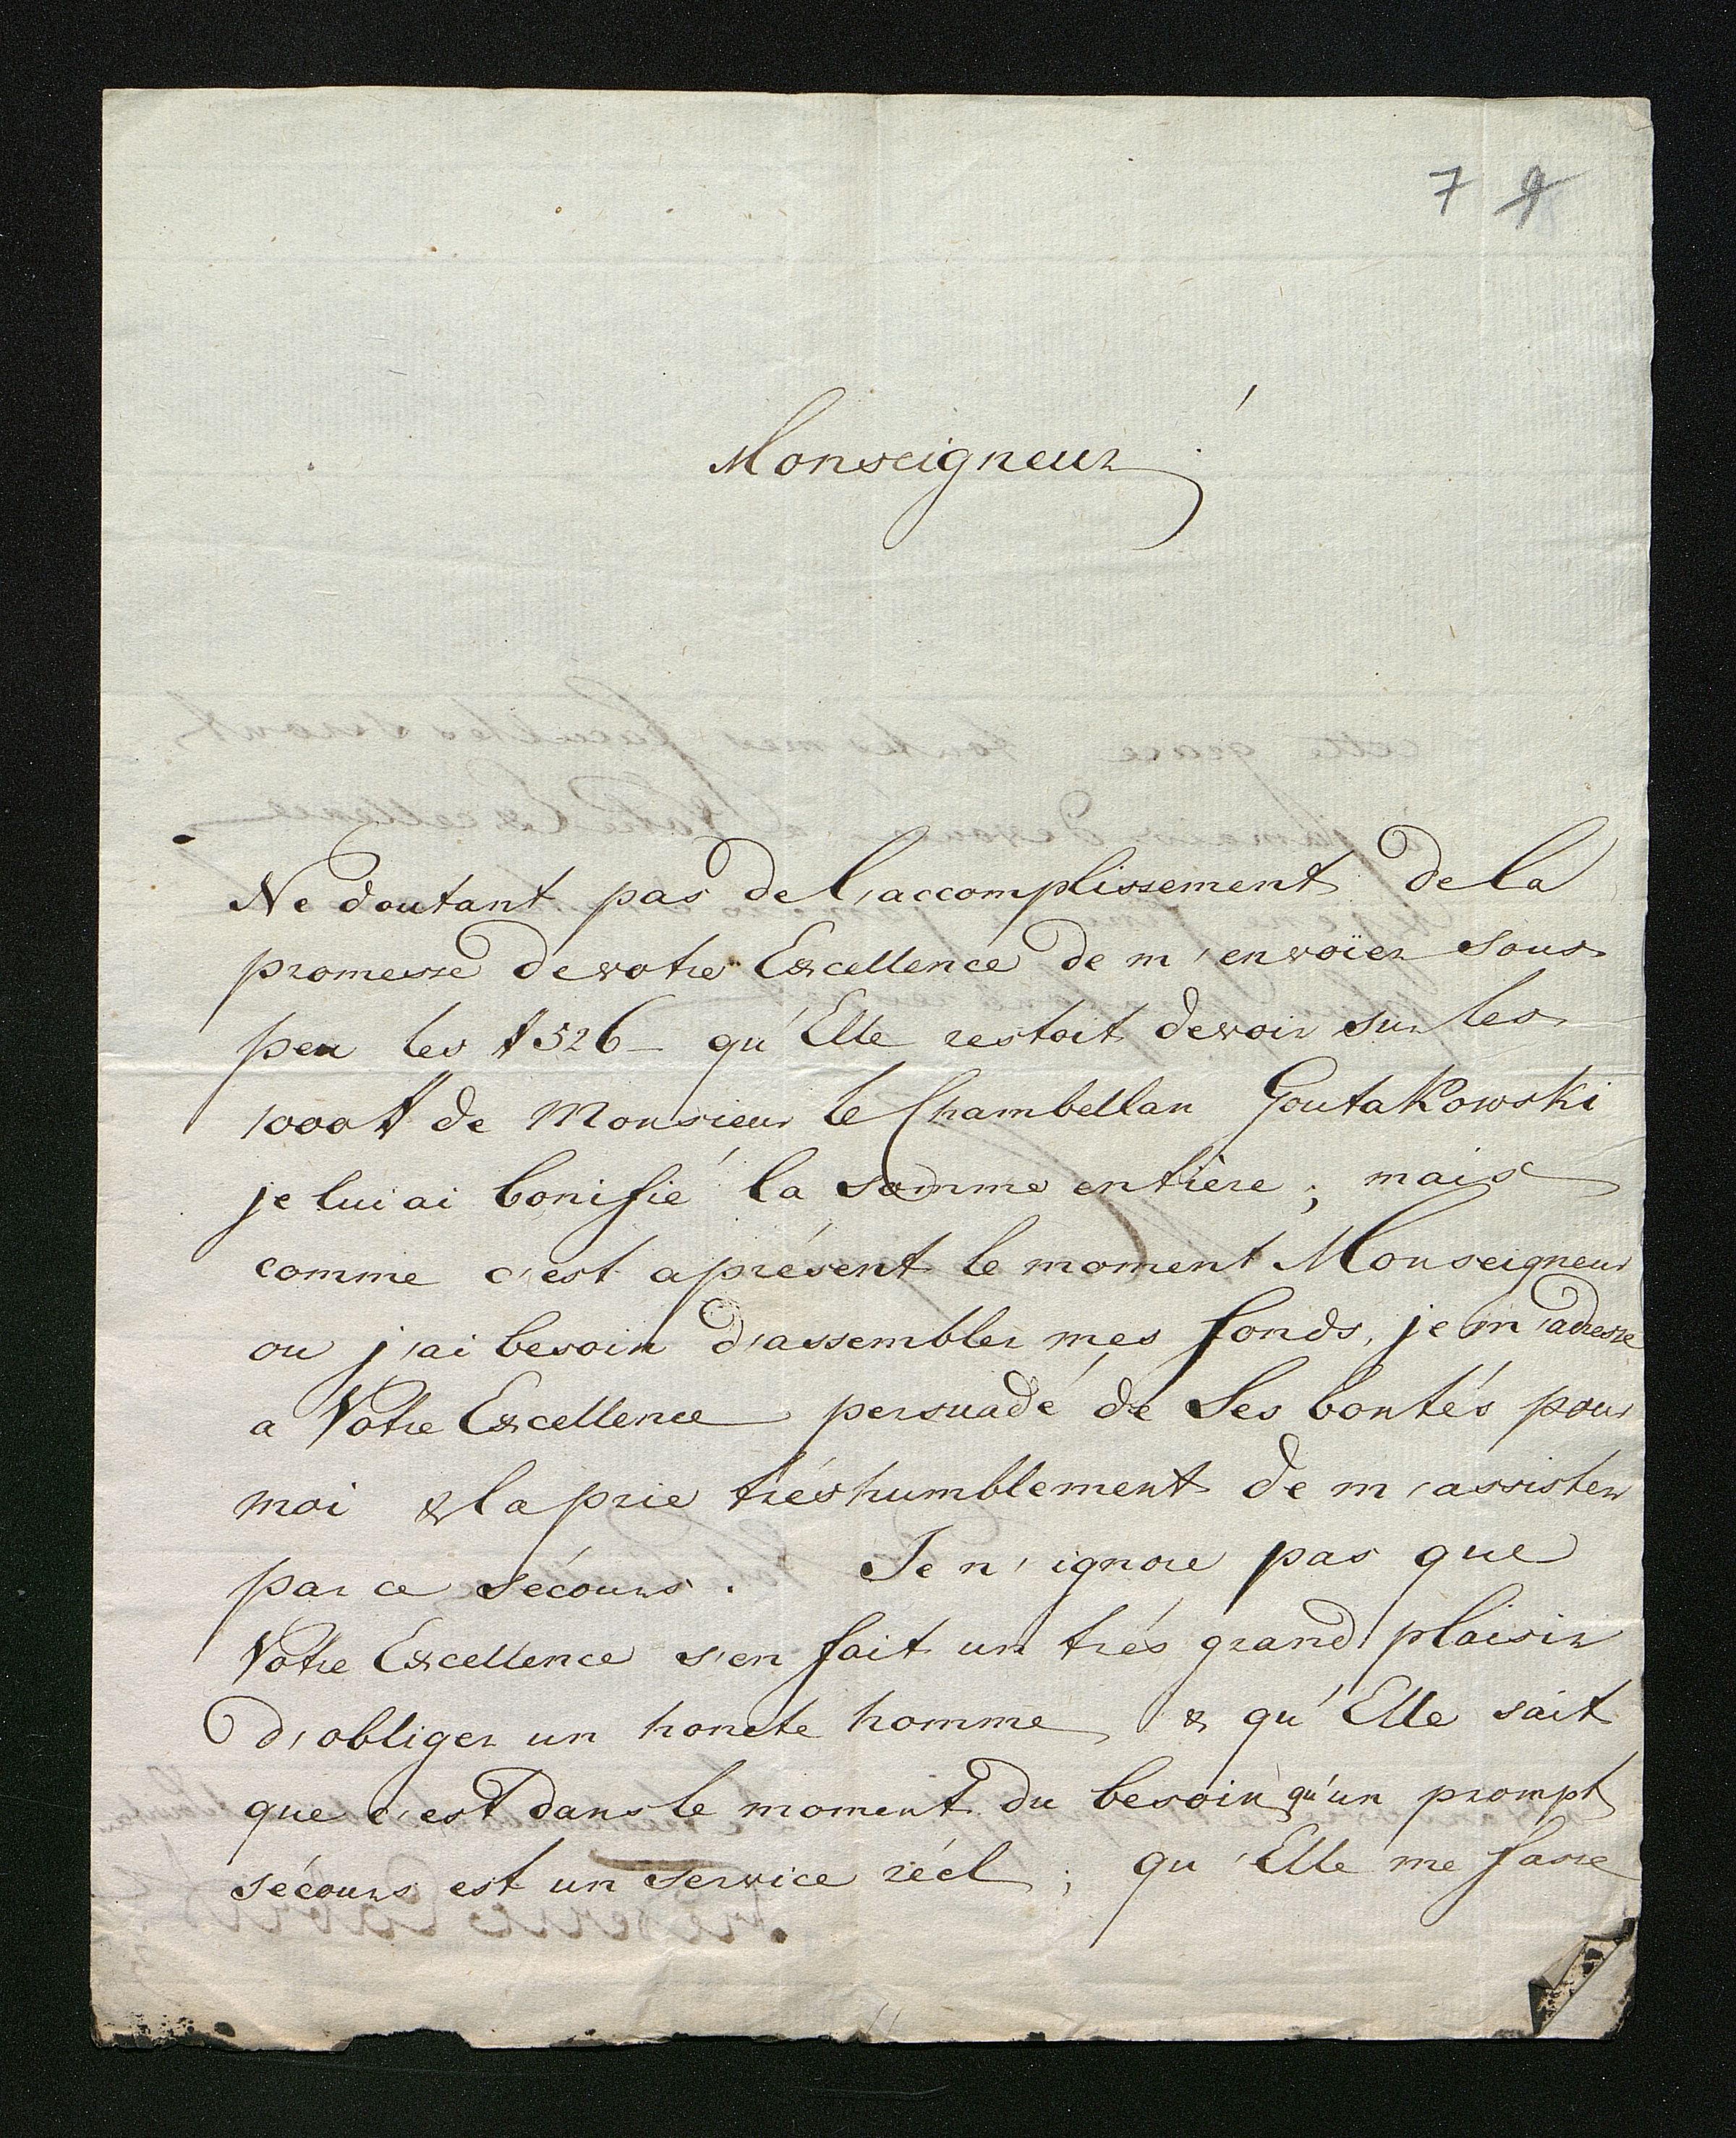 7
Monseigneur!
Ne doutant pas de l'accomplissement de la
promesse de votre Excellence de m'envoïer sous
peu les # 526 – qu'Elle restoit devoir sur les
1000 # de Monsieur le Chambellan Goutakowski
je lui ai bonifié la somme entière; mais
comme c'est aprésent le moment Monseigneur
ou j'ai besoin d'assembler mes fonds, je m'adresse
a Votre Excellence persuadé de Ses bontés pour
moi & la prie trés humblement de m'assister
par ce sécours. Je n'ignore pas que
Votre Excellence s'en fait un trés grand plaisir
d'obliger un honete homme & qu'Elle sait
que c'est dans le moment du besoin qu'un prompt
sécours est un service réel; qu'Elle me fasse